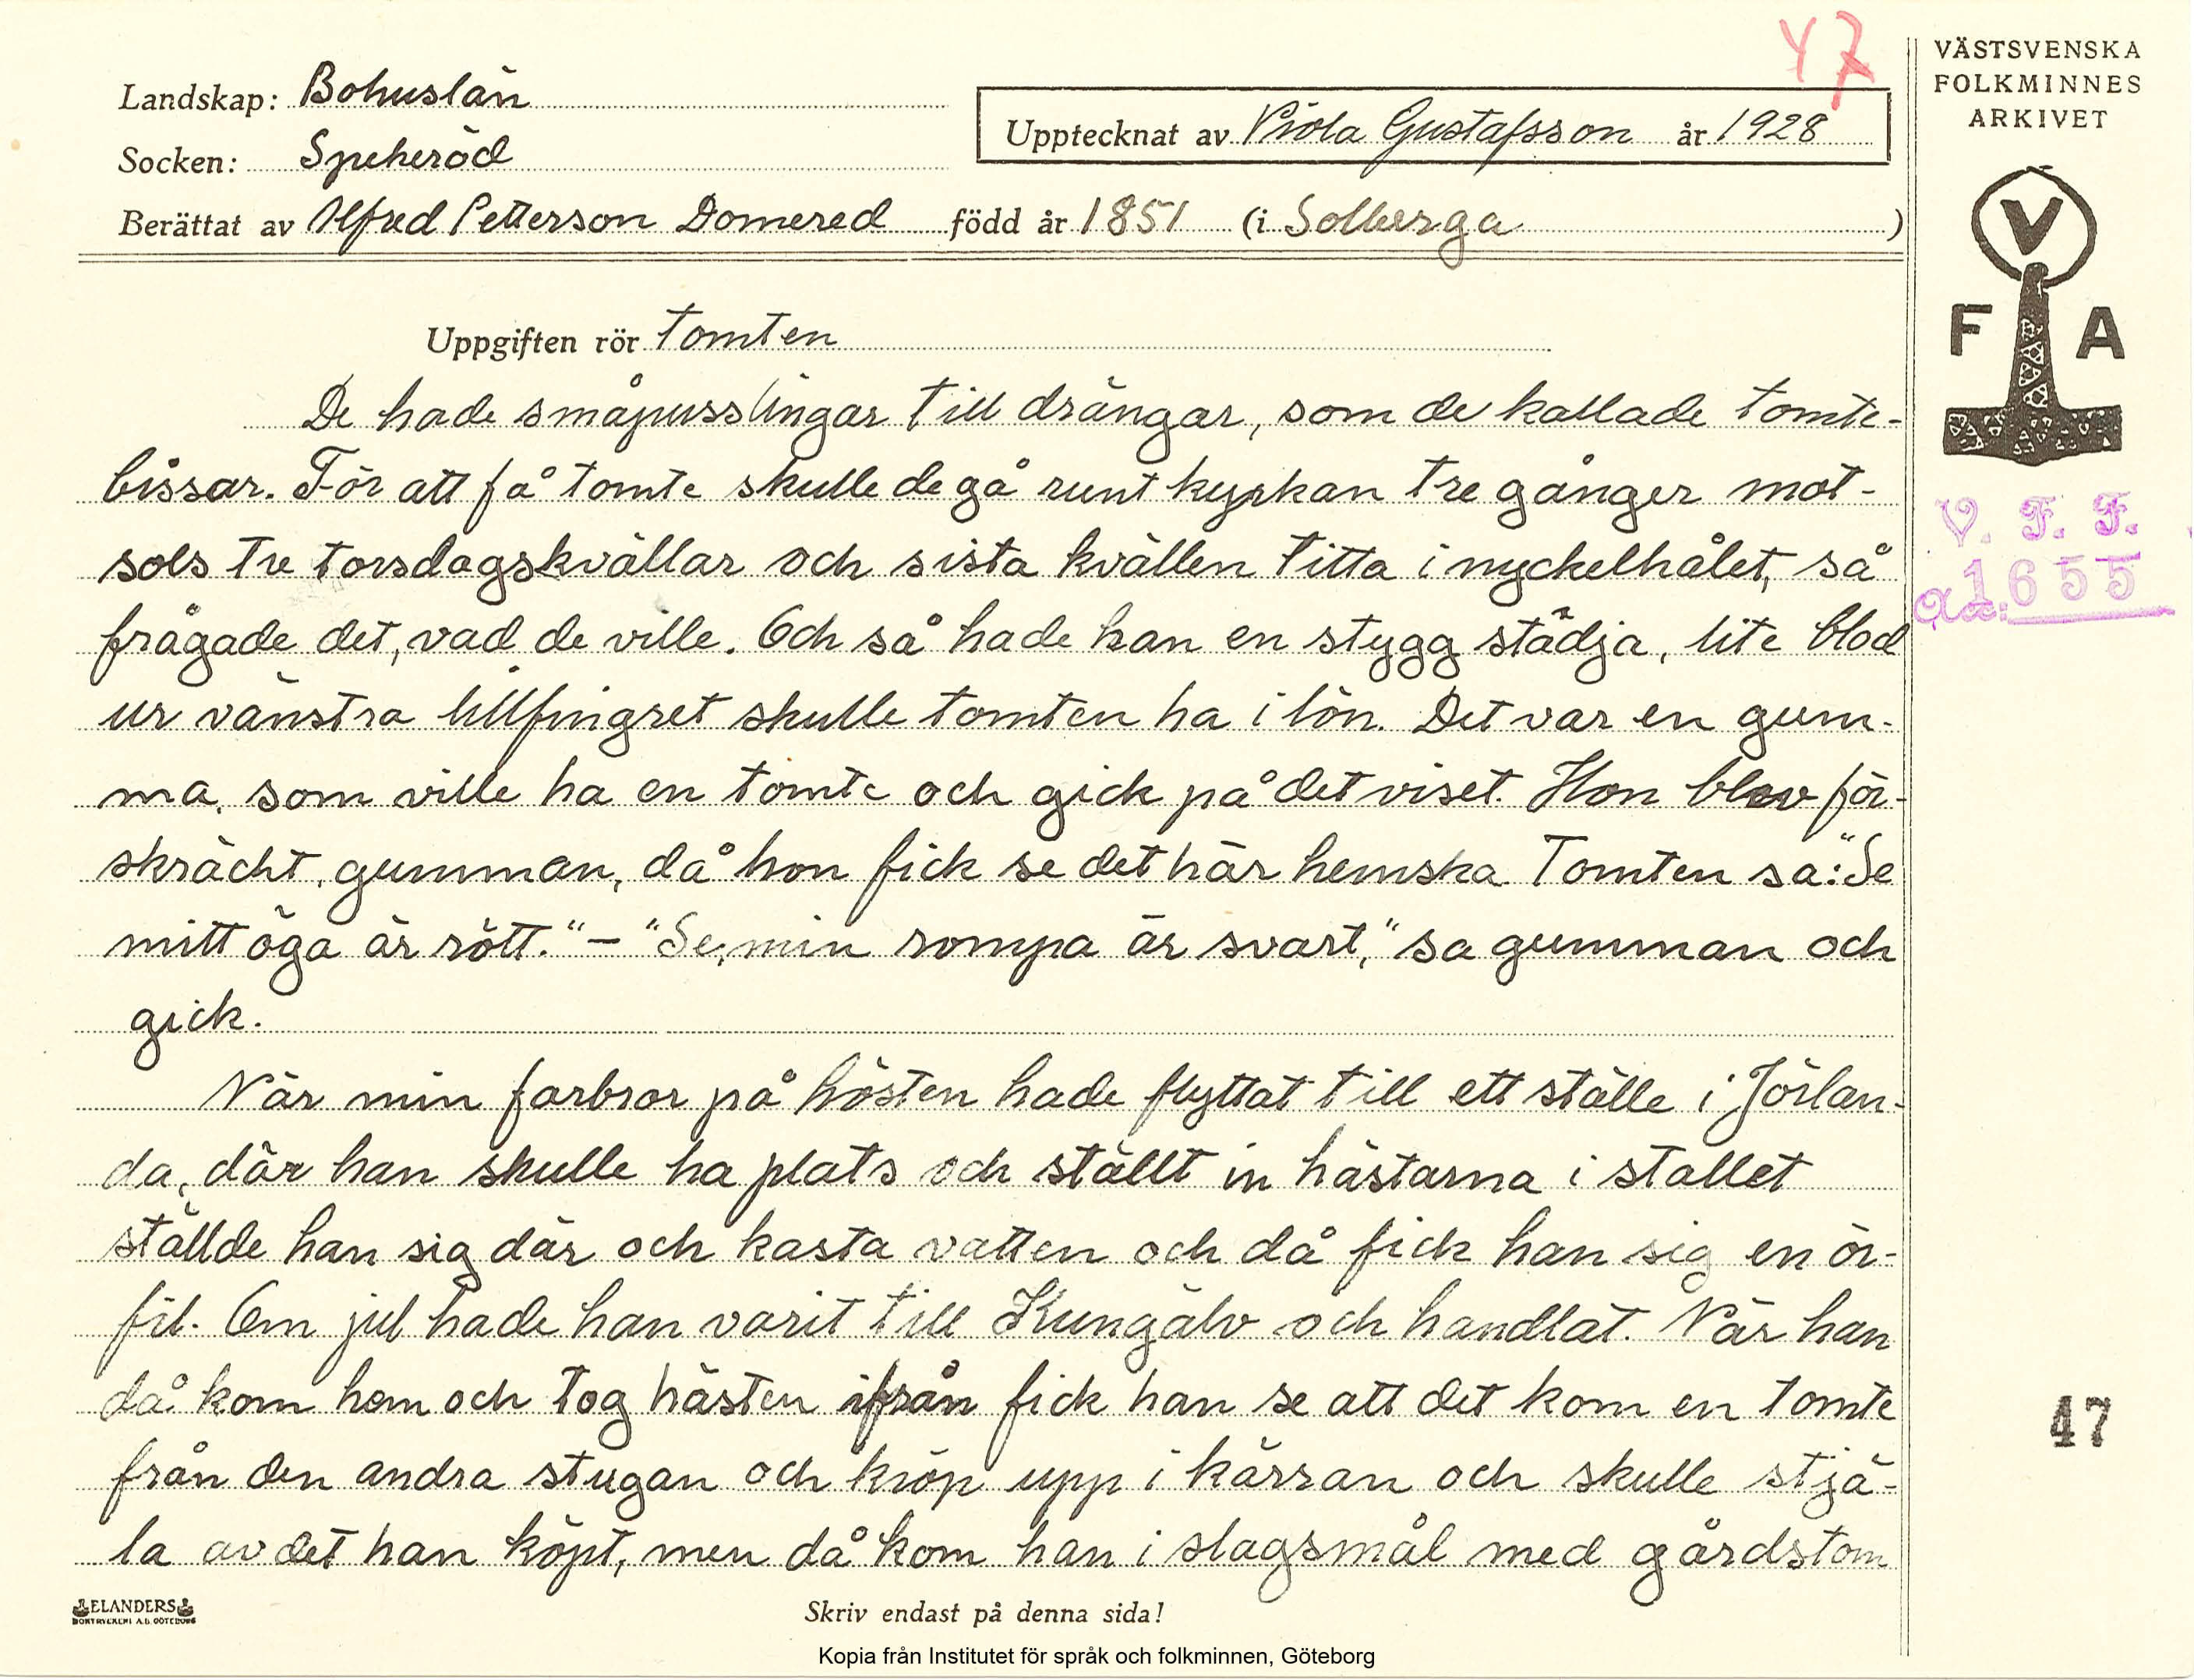 47
VÄSTSVENSKA
FOLKMINNES
ARKIVET
Landskap: Bohuslän
Upptecknat av Viola Gustafsson år 1928
Socken: Spekeröd
Berättat av Alfred Petterson Domered född år 1851 (i Solberga )
V
F A
Uppgiften rör Tomten
De hade småpusslingar till drängar, som de kallade tomte-
bissar. För att få tomte skulle de gå runt kyrkan tre gånger mot-
sols tre torsdagskvällar och sista kvällen titta i nyckelhålet, så
frågade det, vad de ville. Och så hade han en stygg städja, lite blod
ur vänstra lillfingret skulle tomten ha i lön. Det var en gum-
ma, som ville ha en tomte och gick på det viset. Hon blev för-
skrächt, gumman, då hon fick se det här hemska. Tomten sa: "Se
mitt öga är rött." – "Se, min rompa är svart," sa gumman och
gick.
När min farbror på hösten hade flyttat till ett ställe i Jörlan-
da, där han skulle ha plats och ställt in hästarna i stallet
ställde han sig där och kasta vatten och då fick han sig en ör-
fil. Om jul hade han varit till Kungälv och handlat. När han
då kom hem och tog hästen ifrån fick han se att det kom en tomte
från den andra stugan och kröp upp i kärran och skulle stjä-
la av det han köpt, men då kom han i slagsmål med gårdstom
V. F. F.
1655
47
ELANDERS
BOKTRYCKERI A.B. GÖTEBORG
Skriv endast på denna sida!
Kopia från Institutet för språk och folkminnen, Göteborg